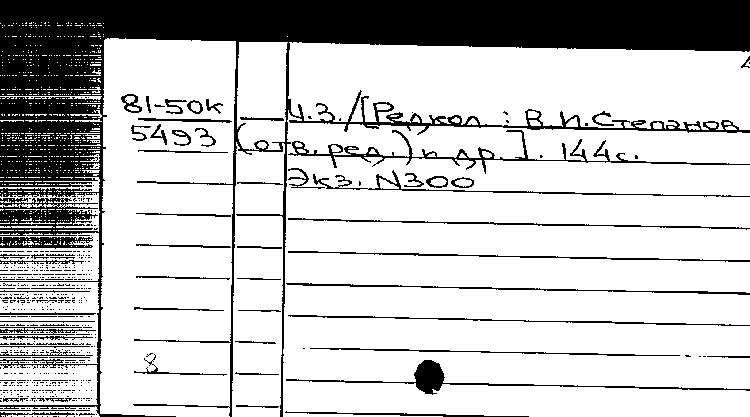 81-50к Ч.3./[Редкол : В.И.Степанов
5493 (отв. ред.) и др.]. 144с.
Экз. N300
8